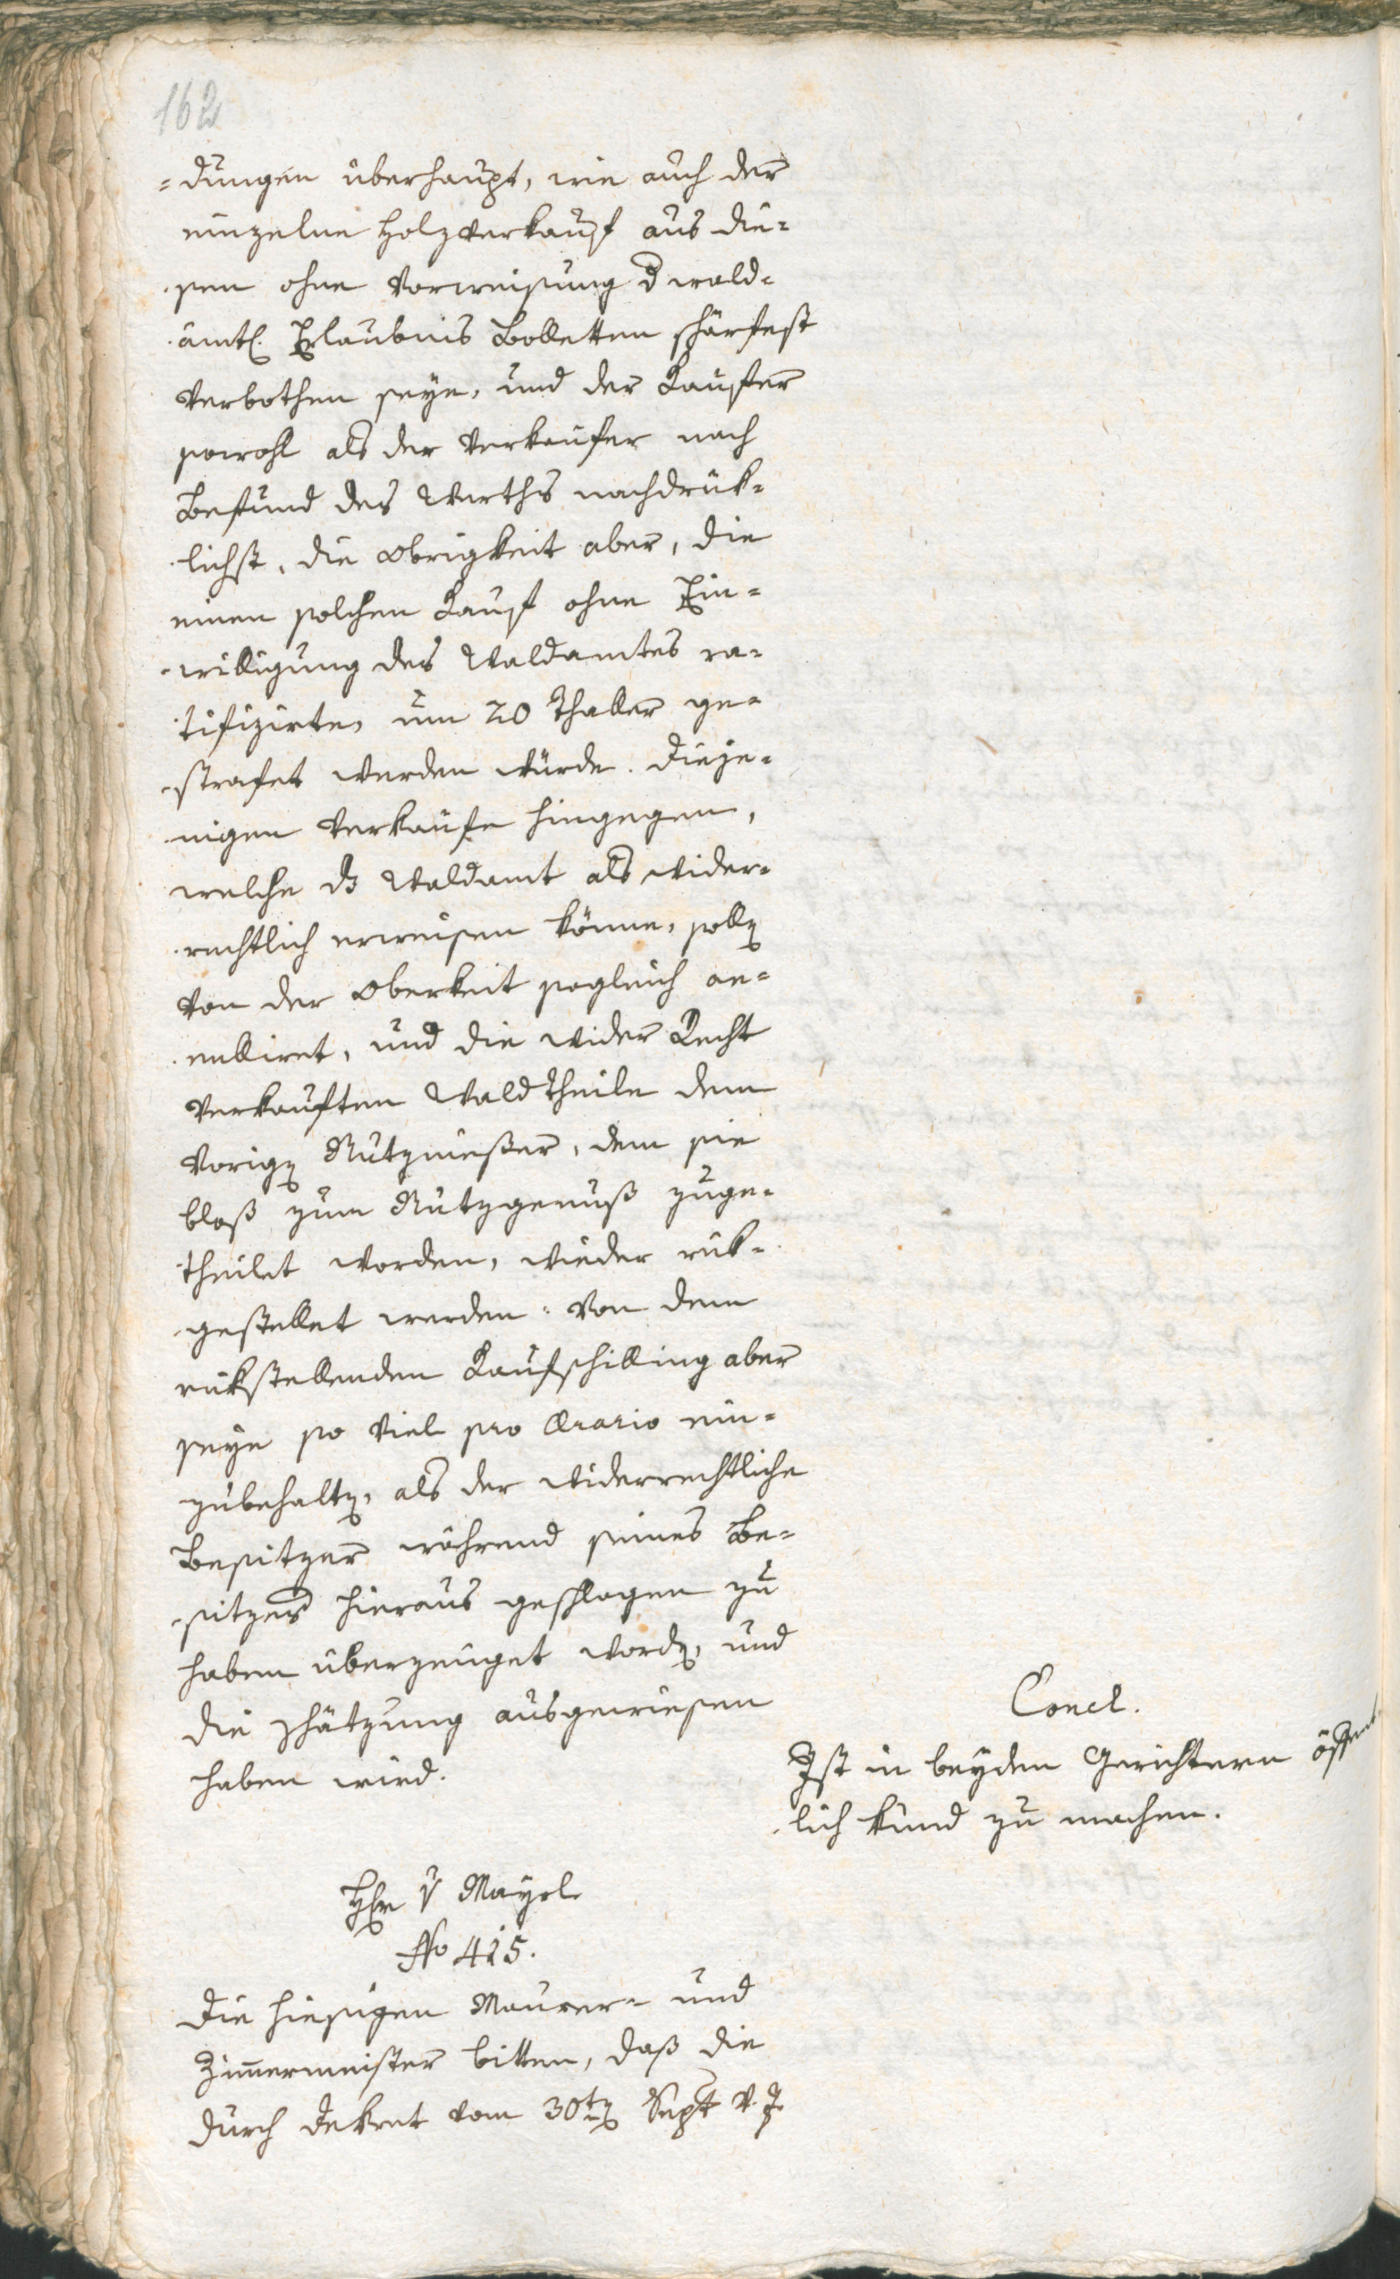 162
=dungen überhaupt, wie auch der
einzelne Holzverkauf aus die=
sen ohne Vorweisung d wald=
ämtl. Erlaubnis Bolletten schärfest
verbothen seye, und der Kauffer
sowohl als der Verkaufer nach
Befund des Werths nachdrük=
lichst, die Obrigkeit aber, die
einen solchen Kauf ohne Ein=
willigung des Waldamtes ra=
tifizirte, um 20 Thaller ge=
strafet werden würde. Dieje=
nigen Verkaufe hingegen,
welche dz Waldamt als wider=
rechtlich erweisen könne, solln
von der Oberkeit sogleich an=
nulliret, und die wider Recht
verkauften Waldtheile dem
vorign Nutznießer, dem sie
bloß zum Nutzgenuß zuge=
theilet worden, wieder rük=
gestellet werden. Von dem
rükstellenden Kaufschilling aber
seye so viel pro Aerario ein=
zubehaltn, als der widerrechtliche
Besitzer während seines Be=
sitzes hieraus geschlagen zu
haben überzeuget wordn, und
die Schätzung ausgewiesen
haben wird.
Concl.
Ist in beyden Gerichtern öffent
lich kund zu machen.
Hr v Mayrl
No 415.
Die hiesigen Maurer= und
Zimmermeister bitten, daß die
durch Dekret vom 30tn Sept v. J.